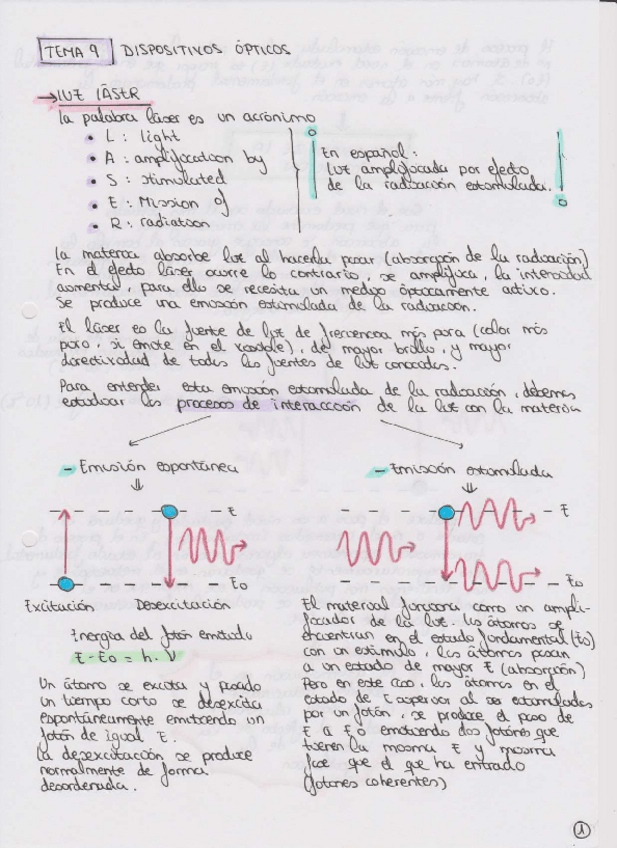 TEMA 9 DISPOSITIVOS ÓPTICOS
→ LUZ LÁSER
La palabra láser es un acrónimo
• L : Light
• A : amplification by
• S : stimulated
• E : Mission of
• R : radiation
En español:
luz amplificada por efecto
de la radiación estimulada.
La materia absorbe luz al hacerla pasar (absorción de la radiación)
En el efecto láser ocurre lo contrario, se amplifica, la intensidad
aumenta, para ello se necesita un medio ópticamente activo.
Se produce una emisión estimulada de la radiación.
El láser es la fuente de luz de frecuencia más pura (color más
puro, si emite en el visible), de mayor brillo, y mayor
directividad de todas las fuentes de luz conocidas.
Para entender esta emisión estimulada de la radiación, debemos
estudiar los procesos de interacción de la luz con la materia
- Emisión espontánea
⇓
E
Eo
Excitación Desexcitación
Energía del fotón emitido
E-Eo = h. ν
Un átomo se excita y pasado
un tiempo corto se desexcita
espontáneamente emitiendo un
fotón de igual E.
La desexcitación se produce
normalmente de forma
desordenada.
- Emisión estimulada
⇓
E
Eo
El material funciona como un ampli-
ficador de la luz. Los átomos se
encuentran en el estado fundamental (Eo)
con un estímulo, los átomos pasan
a un estado de mayor E (absorción)
Pero en este caso, los átomos en el
estado de E superior al ser estimulados
por un fotón, se produce el paso de
E a Eo emitiendo dos fotones que
tienen la misma E y misma
fase que el que ha entrado
(fotones coherentes)
1